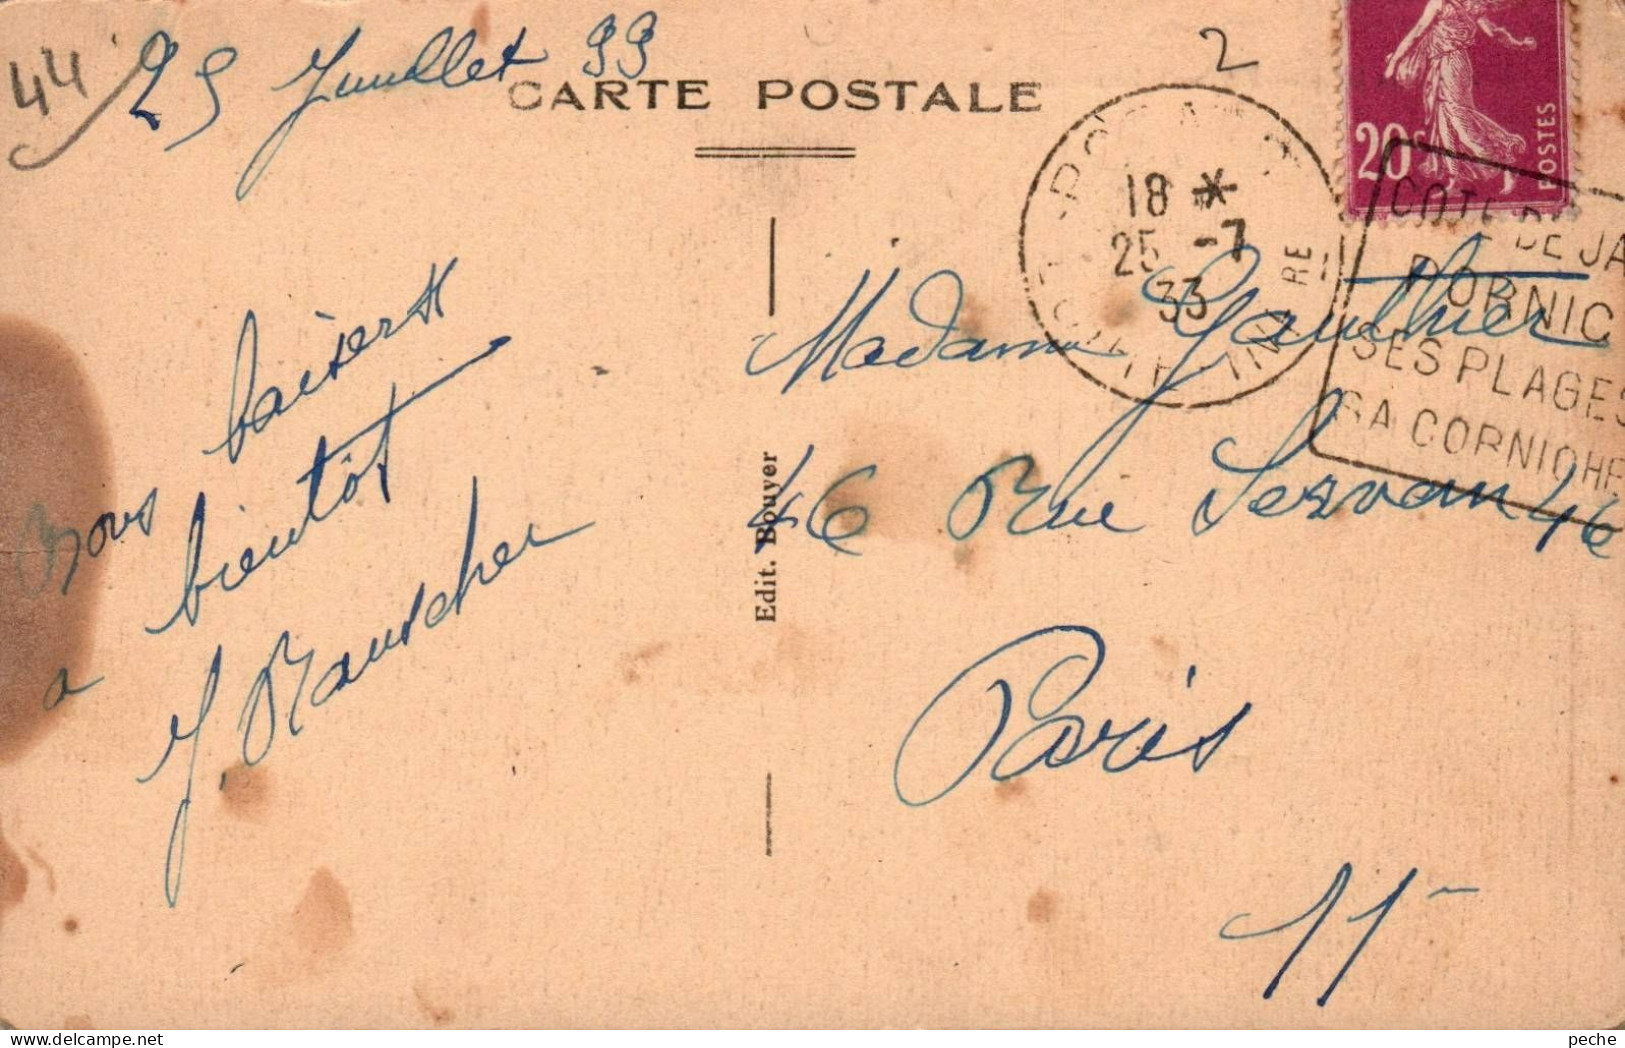 44
25 Juillet 33
CARTE POSTALE
2
20c
POSTES
18 *
25 -7
33
RE INF
COTE DE JA
PORNIC
SES PLAGES
SA CORNICHE
bons baisers
a bientôt
J. Rauscher
Edit. Bouyer
Madame Gauthier
46 Rue Servan 46
Paris
11-
peche